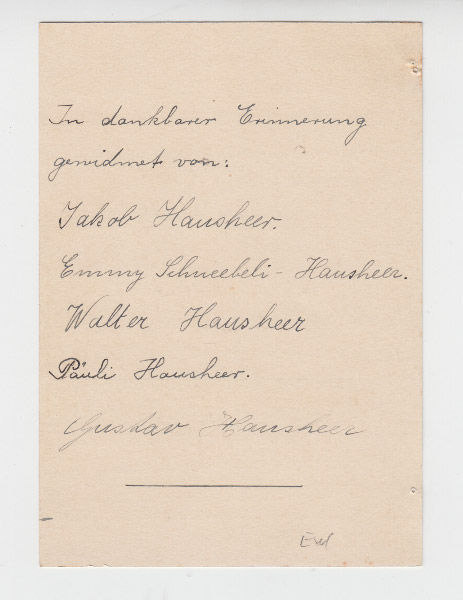 In dankbarer Erinnerung
gewidmet von:
Jakob Hausheer.
Emmy Schneebeli - Hausheer.
Walter Hausheer
Päuli Hausheer.
Gustav Hausheer